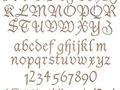 KLMNOPQR
STUVWXYZ
abcdefghijklm
nopqrstuvwxyz
1234567890